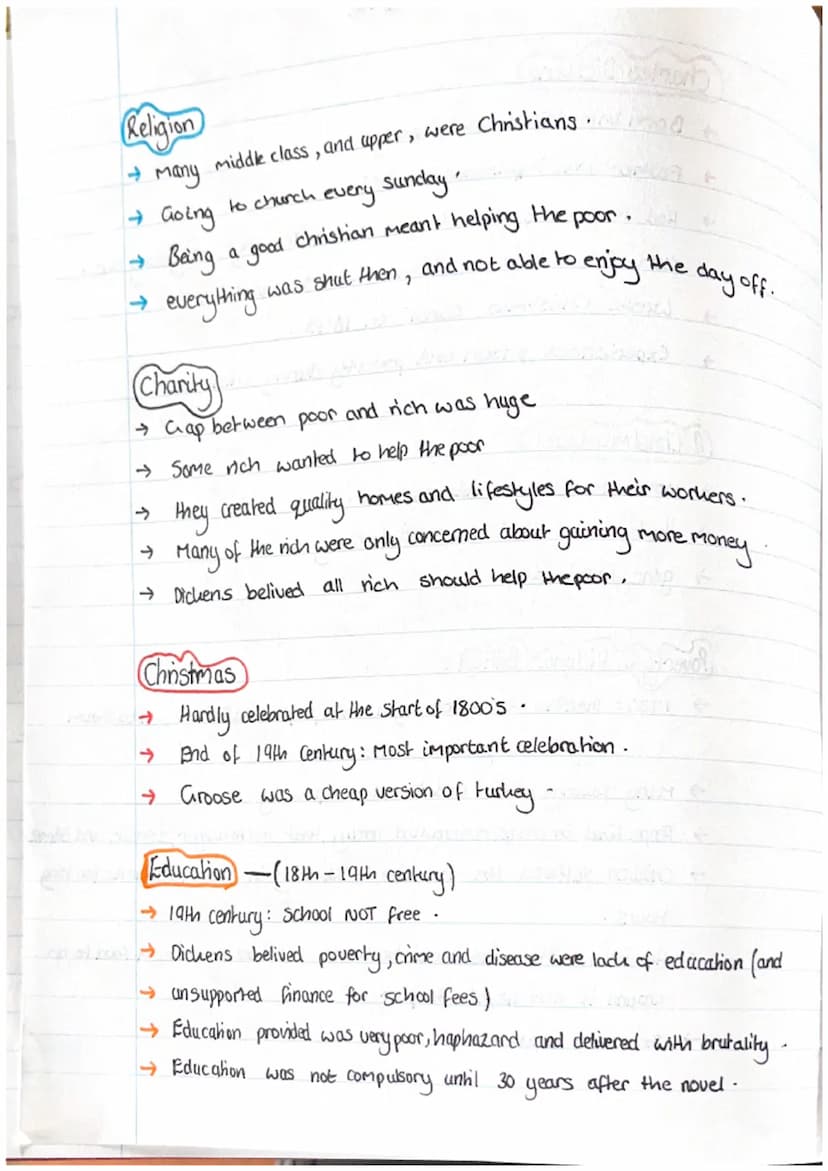 Religion
→ Many middle class, and upper, were Christians.
→ Going to church every sunday.
→ Being a good christian meant helping the poor.
→ everything was shut then, and not able to enjoy the day off.
Charity
→ Gap between poor and rich was huge
→ Some rich wanted to help the poor
→ they created quality homes and lifestyles for their workers.
→ Many of the rich were only concerned about gaining more money.
→ Dickens belived all rich should help the poor.
Christmas
→ Hardly celebrated at the start of 1800's.
→ End of 19th Century: Most important celebration.
→ Goose was a cheap version of turkey -
Education — (18th - 19th century)
→ 19th century: School NOT free.
→ Dickens belived poverty, crime and disease were lack of education (and
→ unsupported finance for school fees)
→ Education provided was very poor, haphazard and delivered with brutality.
→ Education was not compulsory until 30 years after the novel.